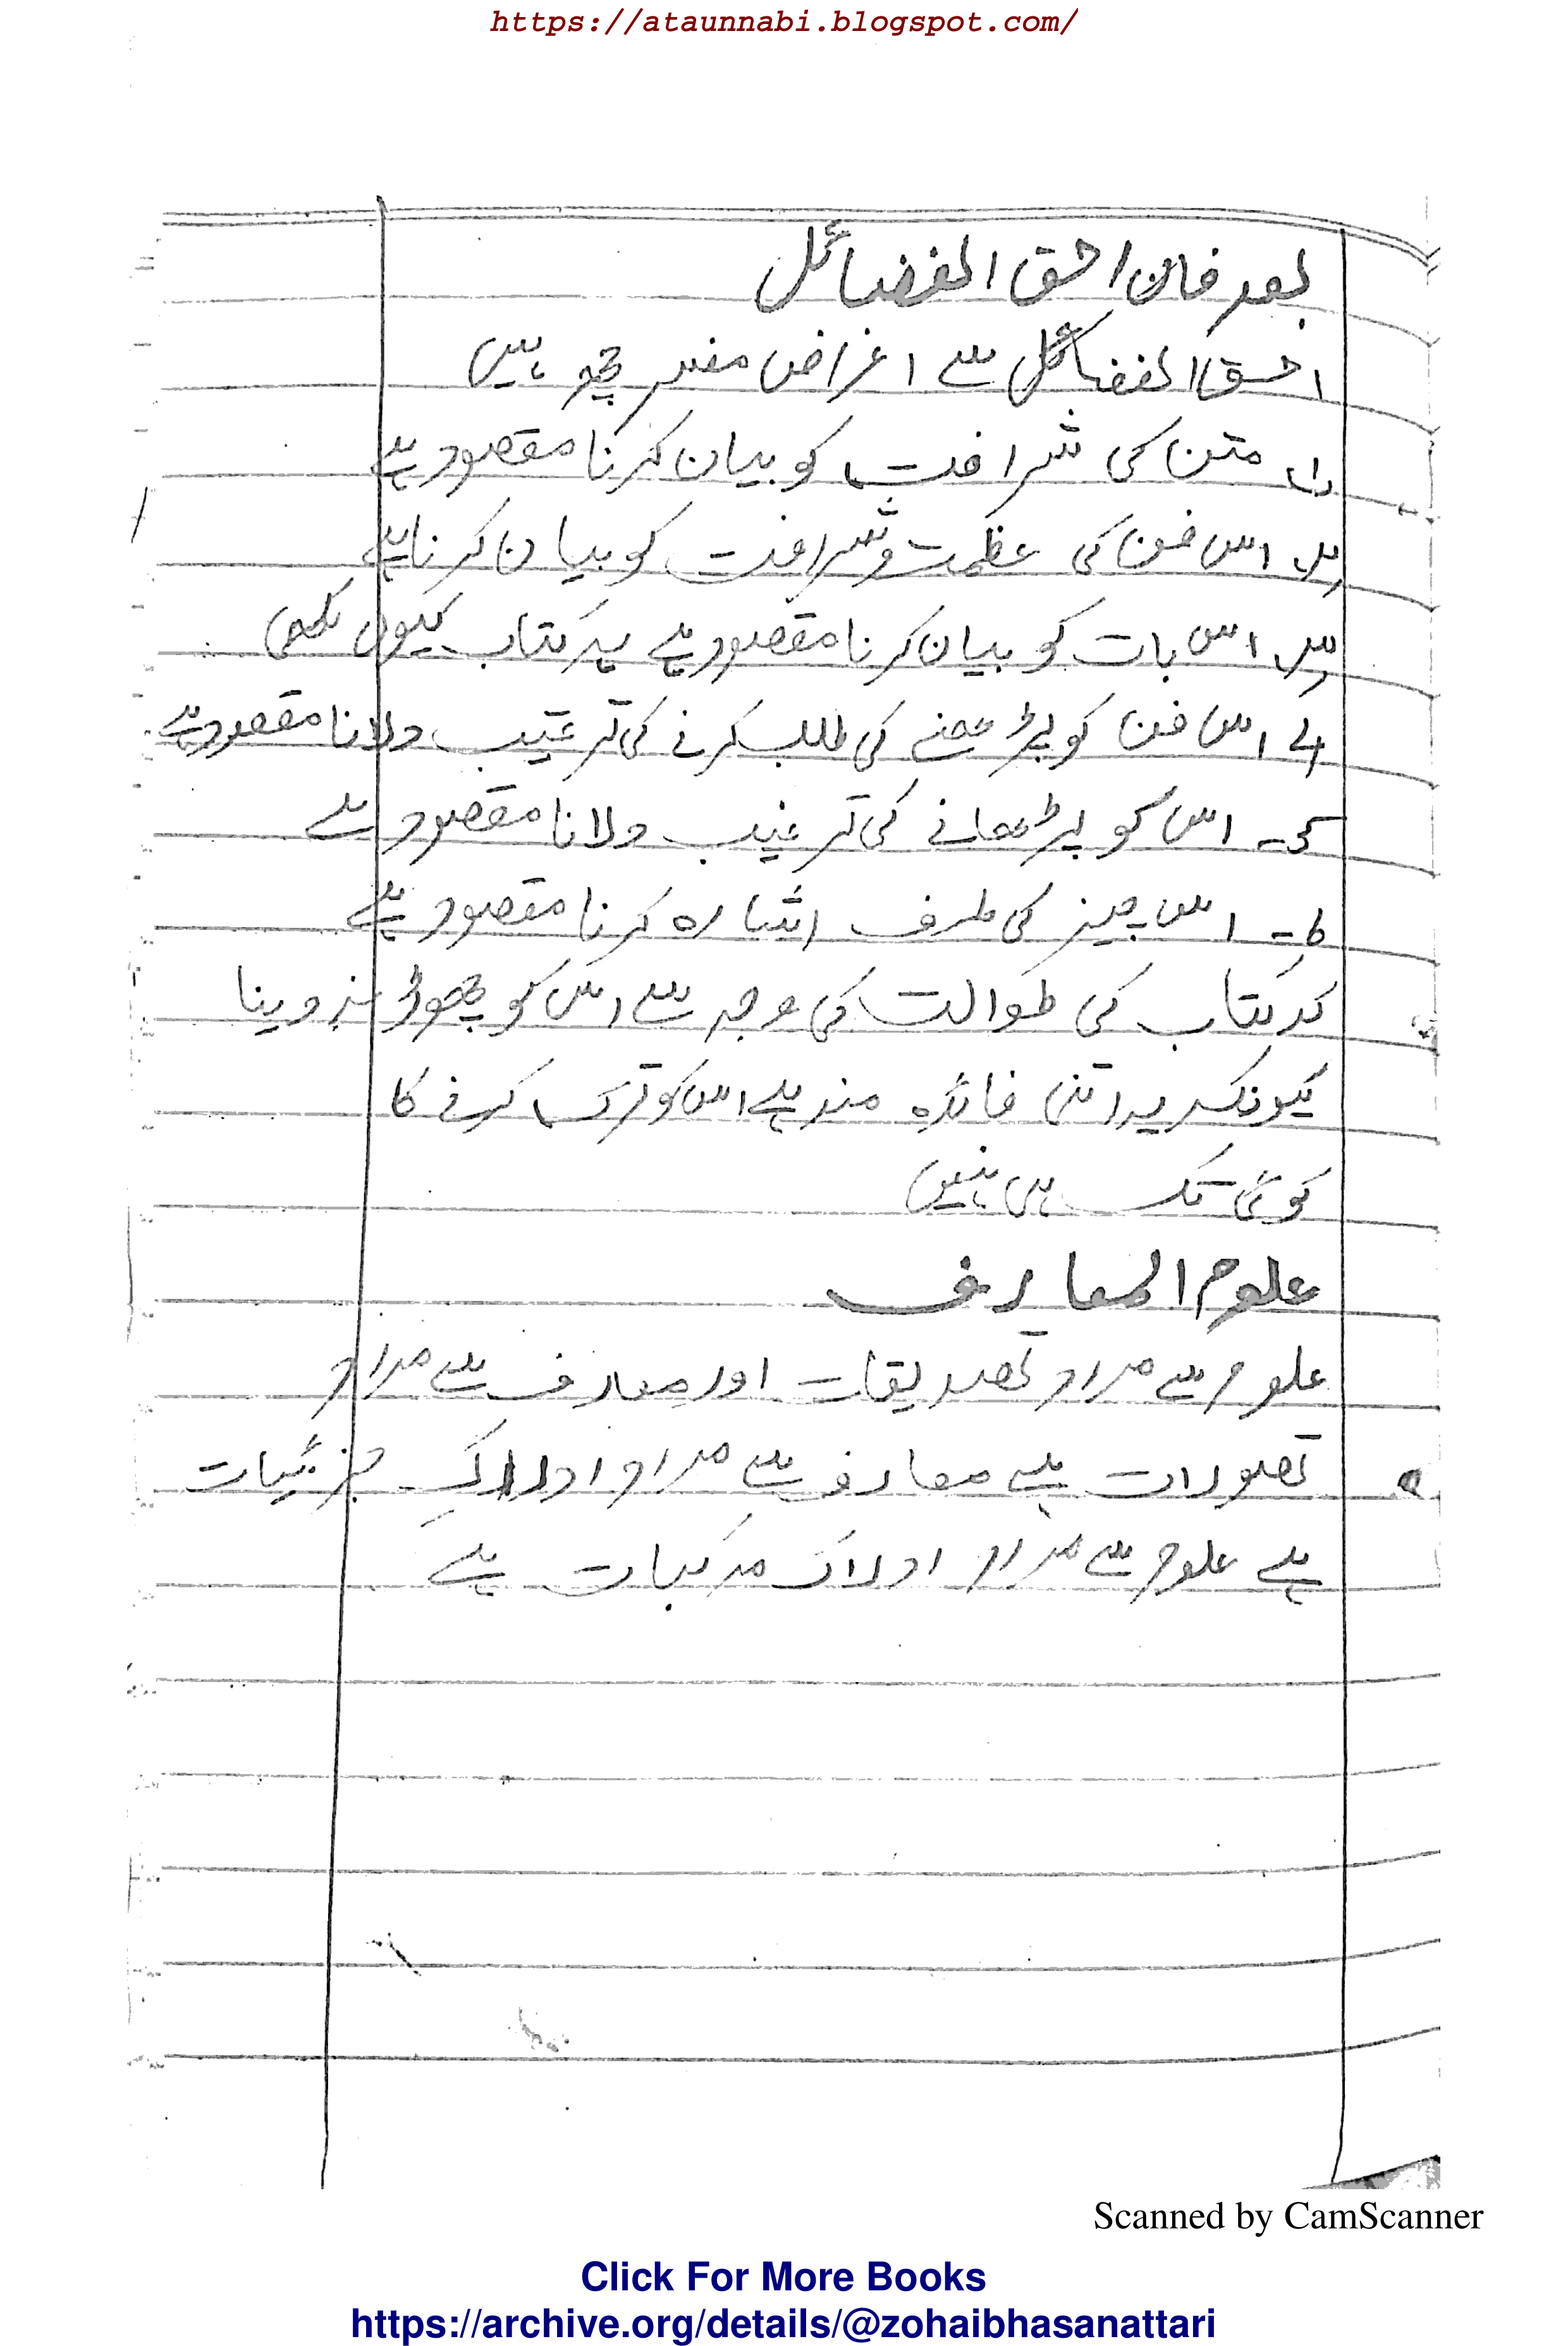 https://ataunnabi.blogspot.com/
بعد فان احق الفضائل
احق الفضائل سے اغراض مفسر چھ ہیں
۱۔ متن کی شرافت کو بیان کرنا مقصود ہے
۲۔ اس فن کی عظمت و شرافت کو بیان کرنا ہے
۳۔ اس بات کو بیان کرنا مقصود ہے یہ کتاب کیوں لکھی
۴۔ اس فن کو پڑھنے کی طلب کرنے کی ترغیب دلانا مقصود ہے
۵۔ اس کو پڑھانے کی ترغیب دلانا مقصود ہے
۶۔ اس چیز کی طرف اشارہ کرنا مقصود ہے
کہ کتاب کی طوالت کی وجہ سے اس کو چھوڑ نہ دینا
کیونکہ یہ اتنی فائدہ مند ہے اس کو ترک کرنے کا
کوئی تک ہی نہیں
علوم المعارف
علوم سے مراد تصدیقات اور معارف سے مراد
تصورات ہے معارف سے مراد ادراکِ جزئیات
ہے علوم سے مراد ادراک مرکبات ہے
Scanned by CamScanner
Click For More Books
https://archive.org/details/@zohaibhasanattari